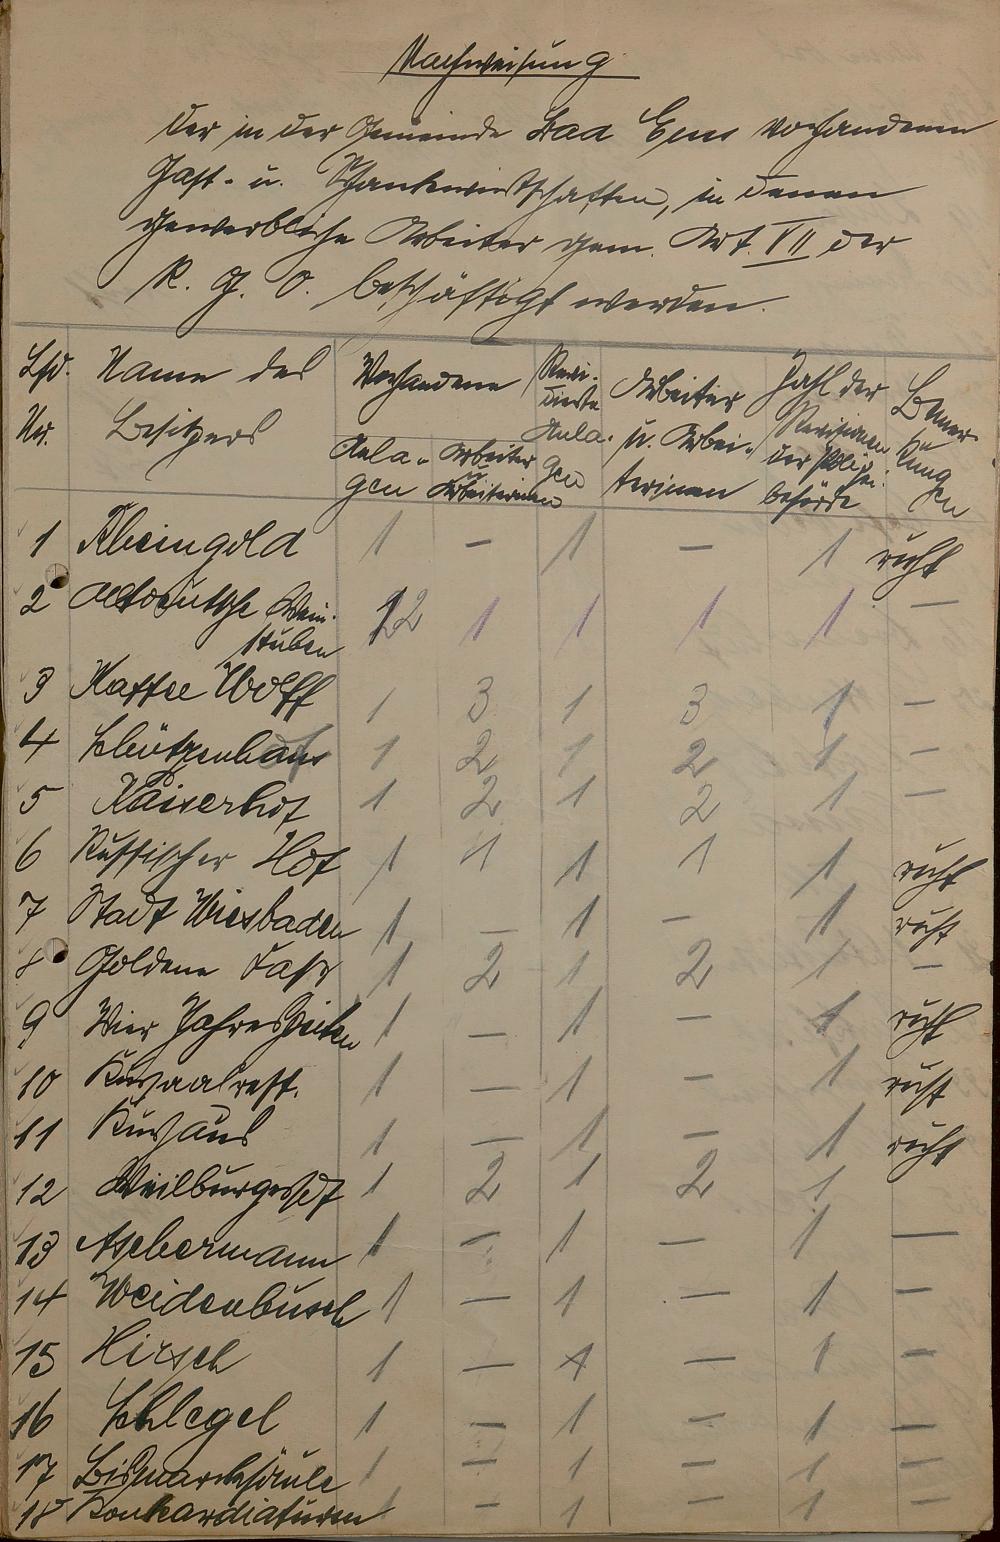 Nachweisung
der in der Gemeinde Bad Ems vorhandenen
Gast- u. Schankwirtschaften, in denen
gewerbliche Arbeiter gem. Art. VII der
R. G. O. beschäftigt werden.
Lfd. Nr.
Name des Besitzers
Vorhandene
Anlagen
Arbeiter u Arbeiterinnen
Revidierte Anlagen
Arbeiter u. Arbeiterinnen
Zahl der Revisionen der Polizeibehörde
Bemerkungen
1 Rheingold 1 – 1 – 1 ruht
2 Altdeutsche Weinstuben 1 1 1 1 –
3 Kaffee Wolff 1 3 1 3 1 –
4 Schützenhaus 1 2 1 2 1 –
5 Kaiserhof 1 2 1 2 1 –
6 Russischer Hof 1 1 1 1 1 ruht
7 Stadt Wiesbaden 1 – 1 – 1 ruht
8 Goldene Fass 1 2 1 2 1 –
9 Vier Jahreszeiten 1 – 1 – 1 ruht
10 Kursaalrest. 1 – 1 – 1 ruht
11 Kurhaus 1 – 1 – 1 ruht
12 Weilburgerhof 1 2 1 2 1
13 Aschermann 1 – 1 – 1 –
14 Weidenbusch 1 – 1 – 1 –
15 Hirsch 1 – 1 – 1 –
16 Schlegel 1 – 1 – 1 –
17 Bismarcksäule 1 – 1 – 1 –
18 Konkordiaturm 1 – 1 – 1 –